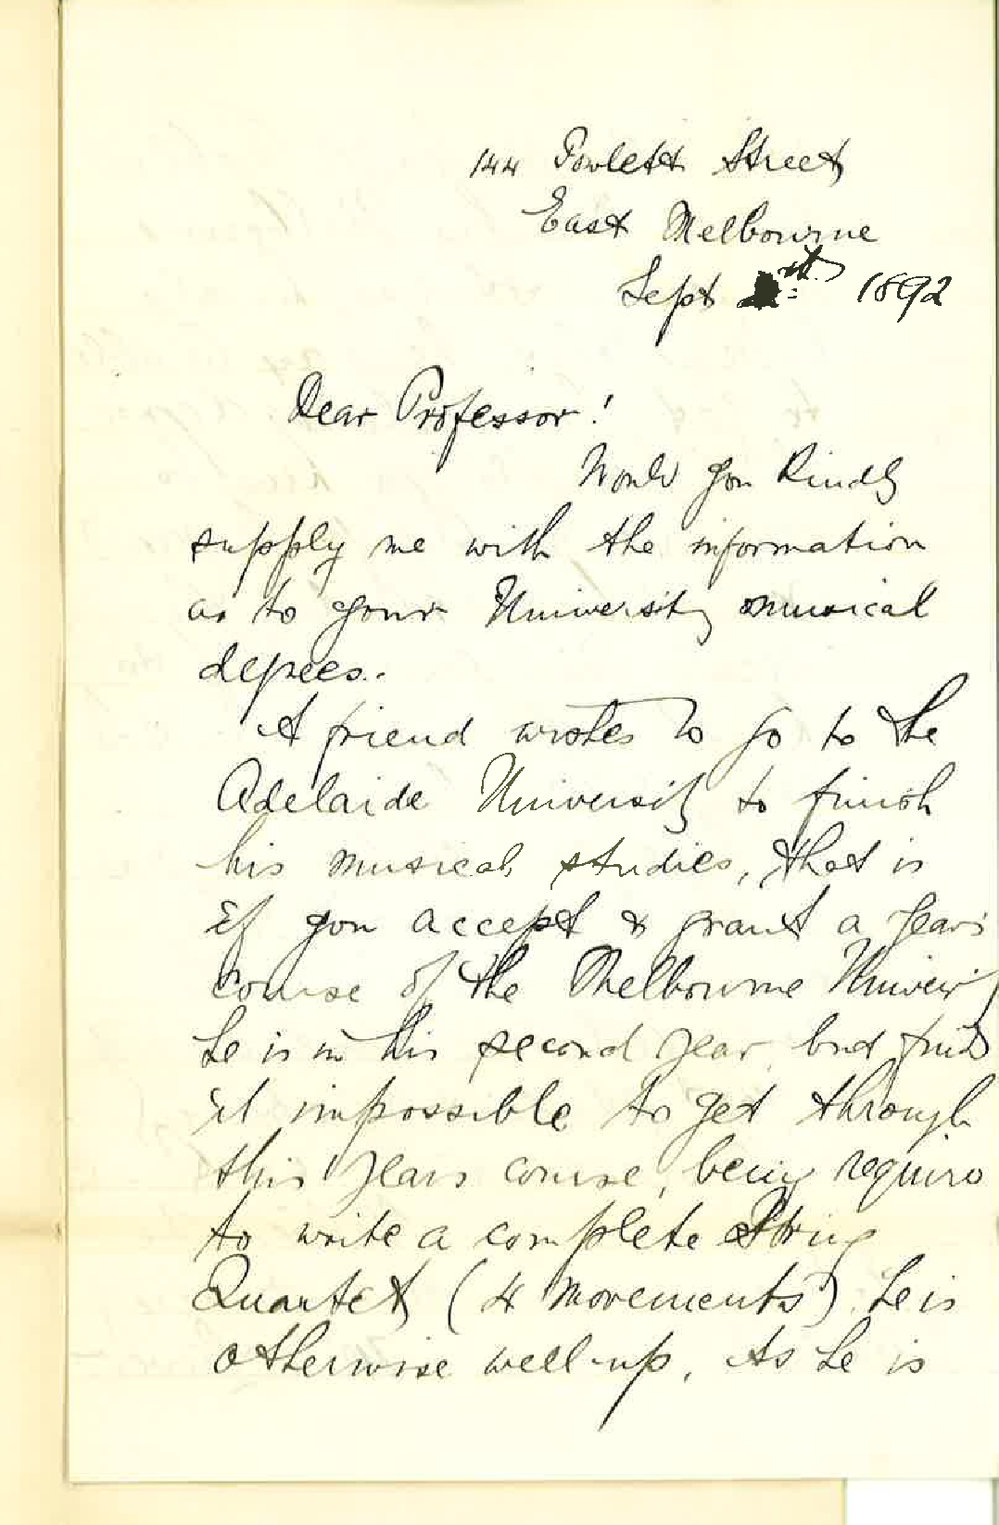 144 Powlett Street
East Melbourne
Sept 1892
Dear Professor!
Would you kindly
supply me with the information
as to your University musical
degrees.
A friend wishes to go to the
Adelaide University to finish
his musical studies, that is
if you accept & grant a years
course of the Melbourne
he is in his second year, but finds
it impossible to get through
this years course, being
to write a complete String
Quartet (4 movements). he is
otherwise well-up. As he is